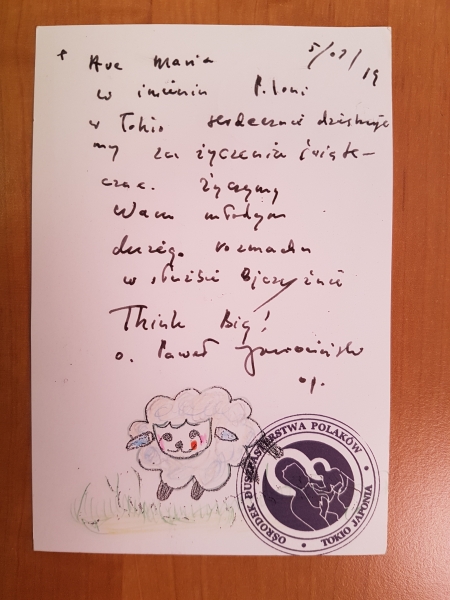 + Ave Maria 5/01/19
w imieniu Poloni
w Tokio serdecznie dziękuje
my za życzenia świąte-
czne. Życzymy
Wam młodym
dużego rozmachu
w służbie Ojczyźnie
Think Big!
o. Paweł
op.
OŚRODEK DUSZPASTERSTWA POLAKÓW
TOKIO JAPONIA